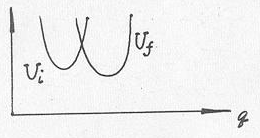 U_i
U_f
q